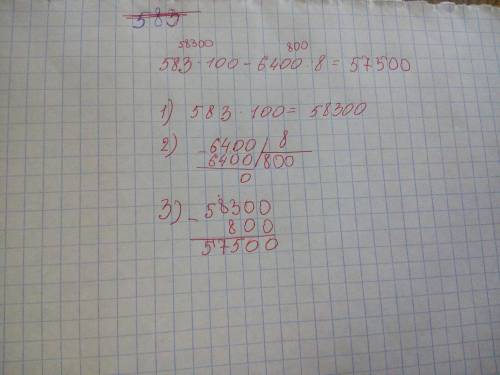 583
58300 800
583 · 100 - 6400 · 8 = 57500
1) 583 · 100 = 58300
2) - 6400 | 8
6400 | 800
0
3) - 58300
800
57500